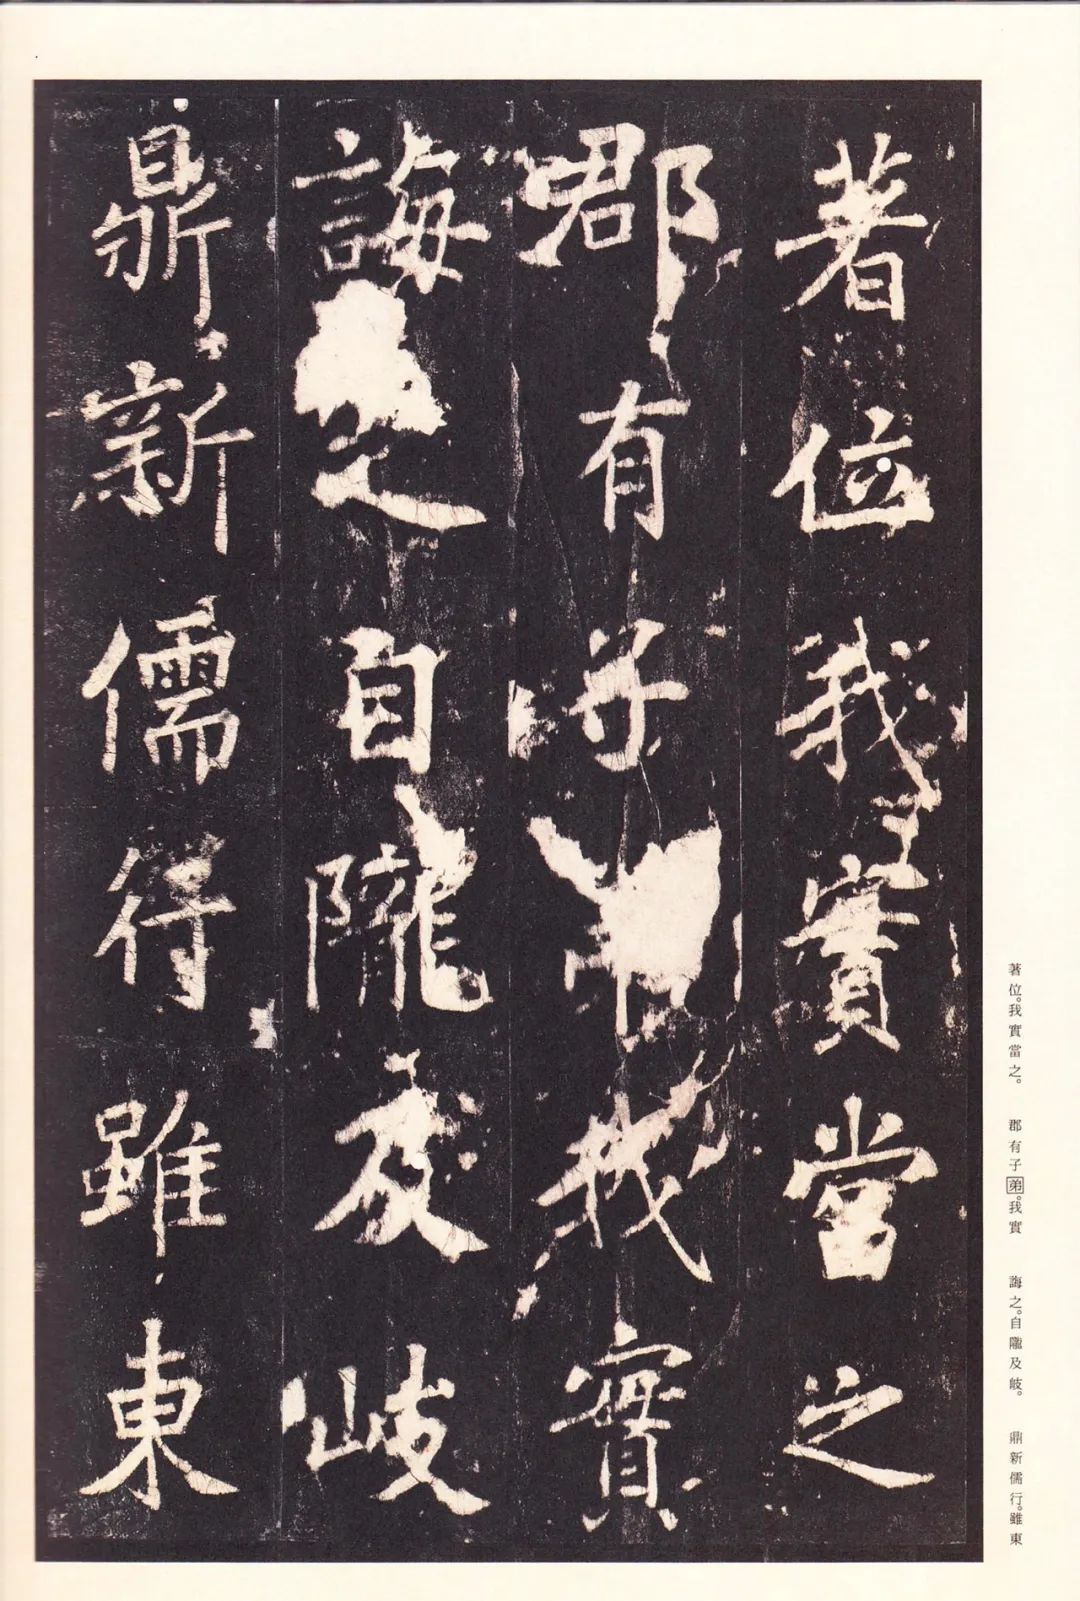 著位我實當之
郡有子我實
誨之自隴及岐
鼎新儒行雖東
著位。我實當之。 郡有子弟。我實 誨之。自隴及岐。 鼎新儒行。雖東